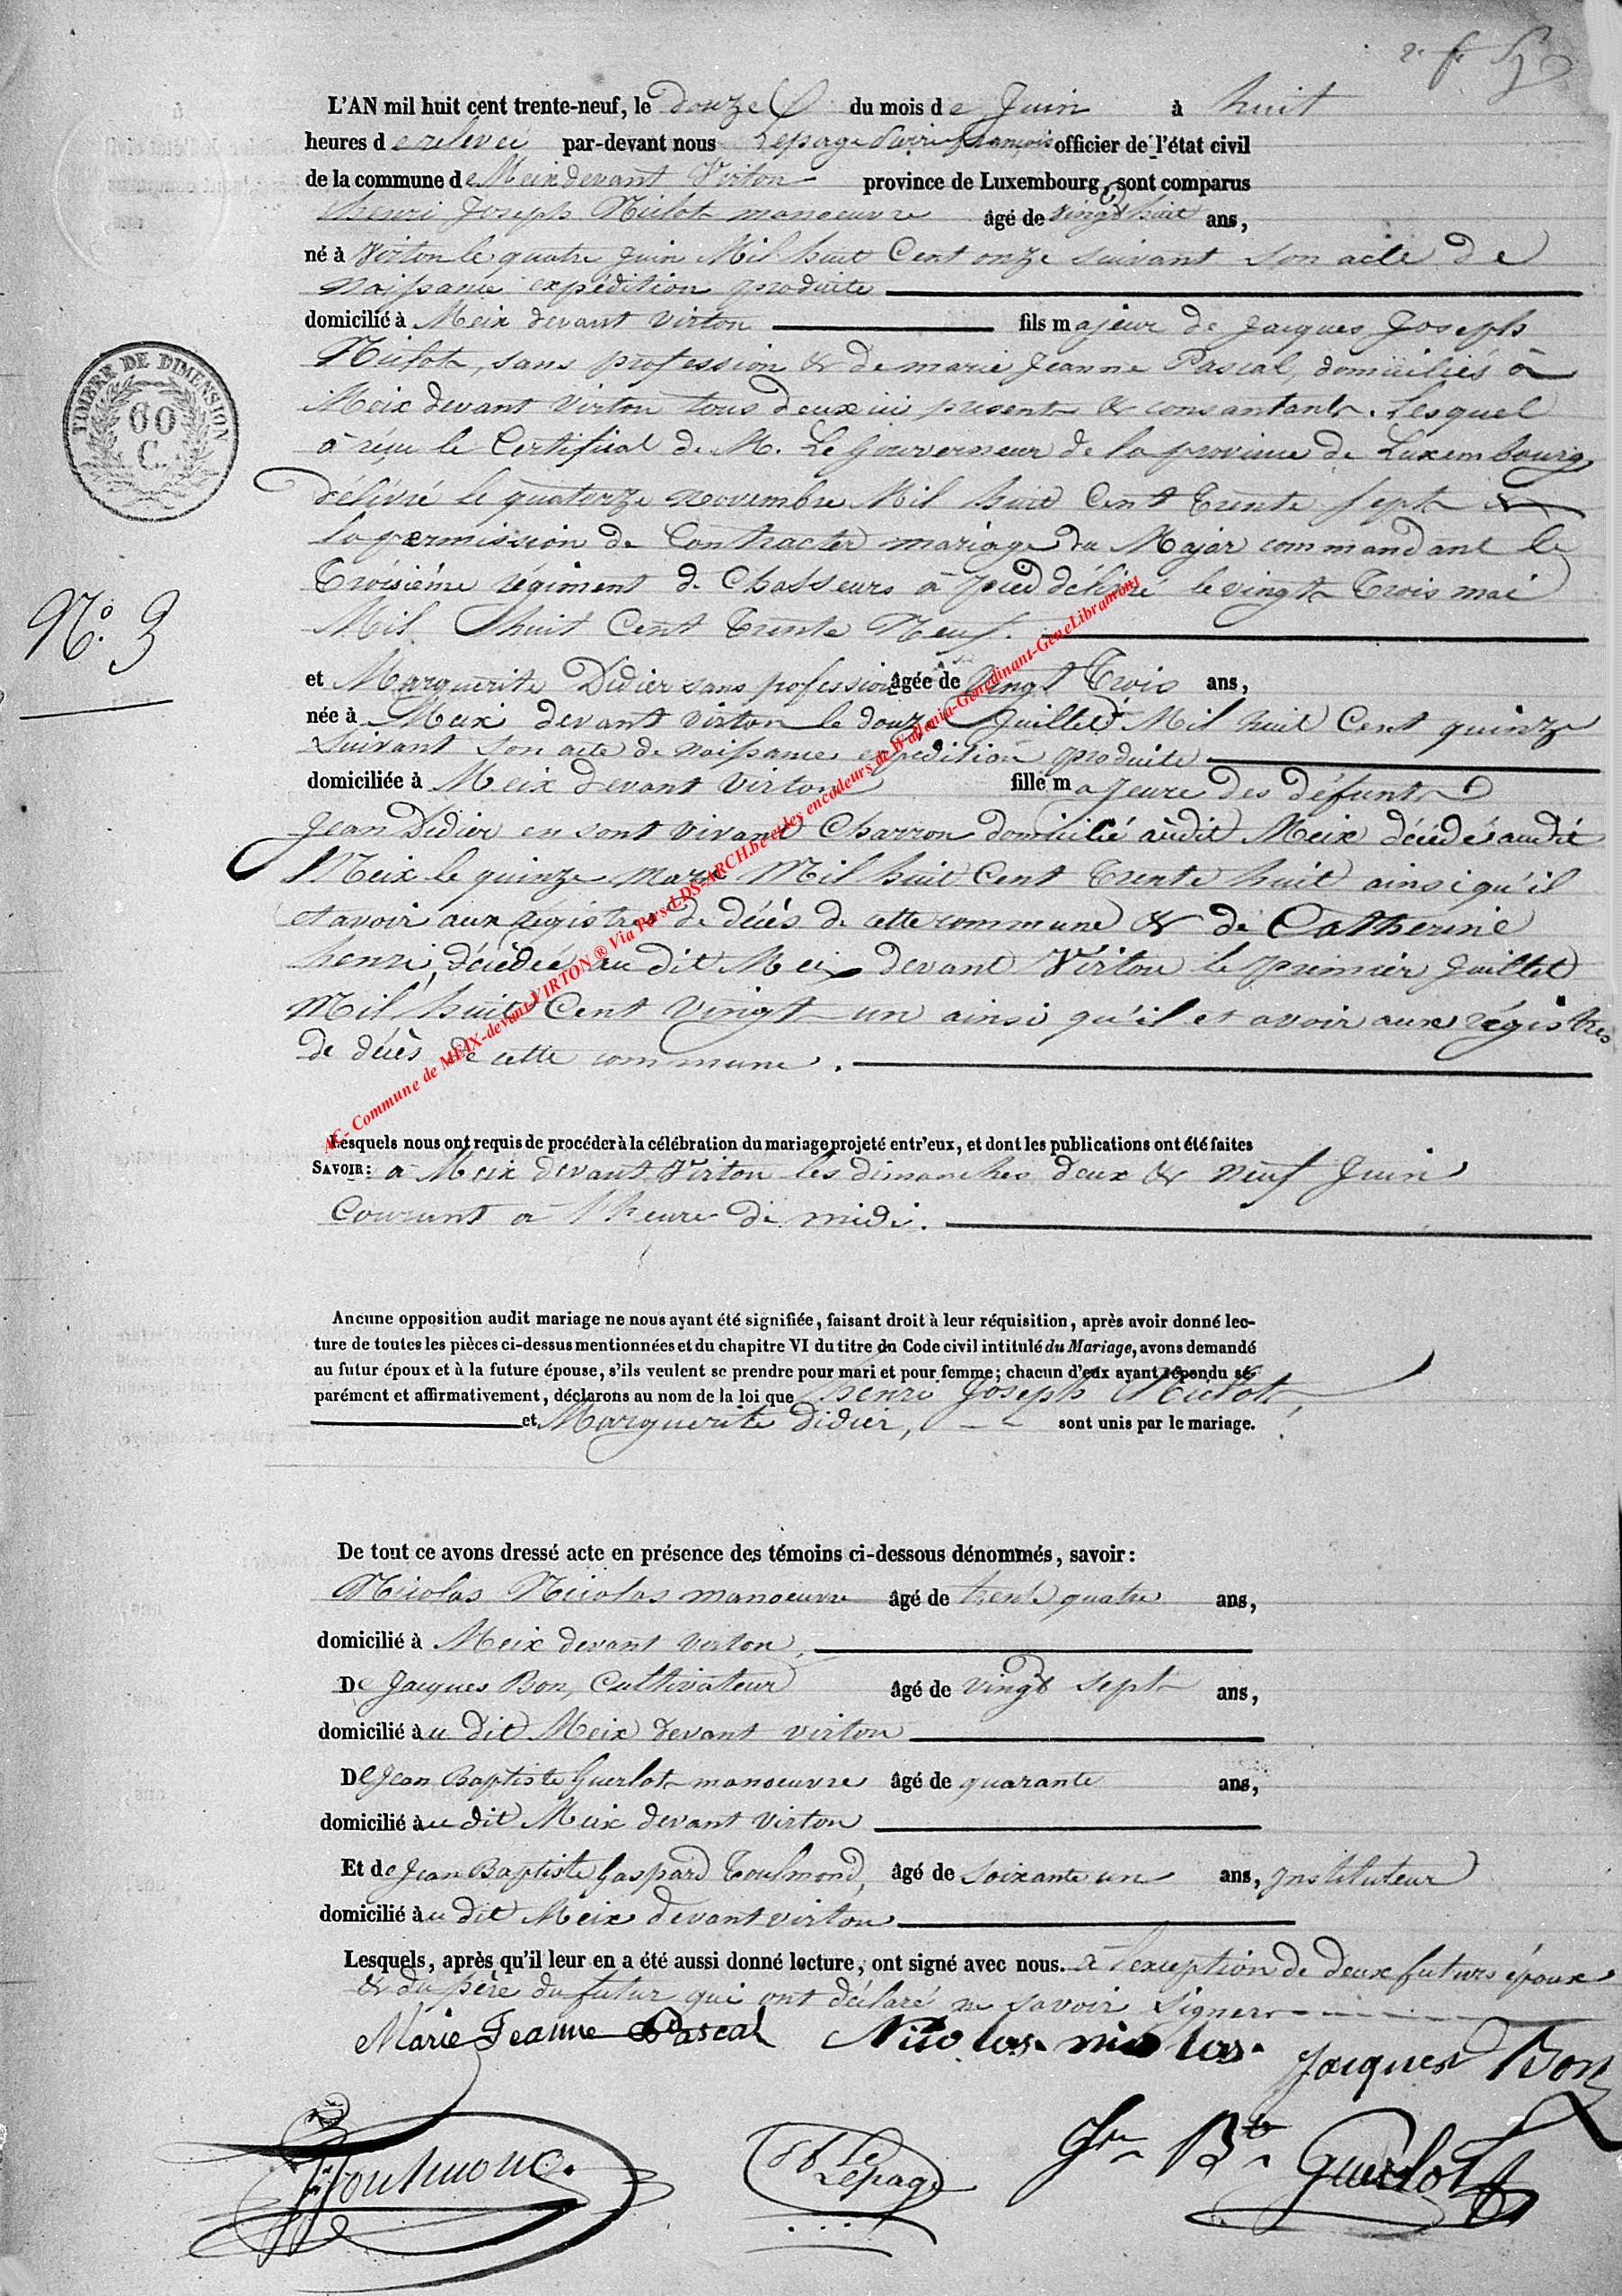 L'AN mil huit cent trente-neuf, le douze du mois de Juin à huit
heures de relevée par-devant nous Lepage Pierre françois officier de l'état civil
de la commune de Meix devant Virton province de Luxembourg, sont comparus
henri Joseph Niclot manoeuvre âgé de vingt huit ans,
né à Virton le quatre Juin Mil huit Cent onze suivant son acte de
Naissance expédition produite
domicilié à Meix devant Virton fils majeur de Jacques Joseph
Niclot, sans profession & de marie Jeanne Pascal, domiciliés à
Meix devant Virton tous deux ici present & consantant. Lesquel
à réçu le Certificat de M. Le Gouverneur de la province de Luxembourg
délivré le quatorze novembre Mil huit Cent trente sept &
la permission de Contracter mariage du Major commandant le
Troisième régiment de Chasseurs à pied délivré le vingt trois mai
Mil huit Cent trente Neuf.
N.° 3
TIMBRE DE DIMENSION
60
C.
et Marguerite Didier sans profession âgée de Vingt Trois ans,
née à Meix devant Virton le douze Juillet Mil huit Cent quinze
suivant son acte de naissance expédition produite
domiciliée à Meix devant Virton fille majeure des défunts
Jean Didier en sont vivant Charron domicilié audit Meix décédé audit
Meix le quinze mars Mil huit Cent trente huit ainsi qu'il
et avoir aux régistres de décès de cette commune & de Catherine
henri, décédée au dit Meix devant Virton le premier Juillet
Mil huit Cent Vingt un ainsi qu'il et avoir aux régistres
de décès de cette commune.
AC- Commune de MEIX-devant-VIRTON ® Via Pars-LDS-ARCH.be et les encodeurs de Wallonia-Genedinant-GeneLibramont
Lesquels nous ont requis de procéder à la célébration du mariage projeté entr'eux, et dont les publications ont été faites
SAVOIR: à Meix devant Virton les dimanches deux & neuf Juin
Courant à l'heure de midi.
Aucune opposition audit mariage ne nous ayant été signifiée, faisant droit à leur réquisition, après avoir donné lec-
ture de toutes les pièces ci-dessus mentionnées et du chapitre VI du titre du Code civil intitulé du Mariage, avons demandé
au futur époux et à la future épouse, s'ils veulent se prendre pour mari et pour femme; chacun d'eux ayant répondu sé-
parément et affirmativement, déclarons au nom de la loi que henri Joseph Niclot,
et Marguerite Didier, sont unis par le mariage.
De tout ce avons dressé acte en présence des témoins ci-dessous dénommés, savoir:
Nicolas Nicolas manoeuvre âgé de trente quatre ans,
domicilié à Meix devant Virton,
De Jacques Bon, Cultivateur âgé de vingt sept ans,
domicilié au dit Meix devant virton
De Jean Baptiste Guerlot manoeuvre âgé de quarante ans,
domicilié au dit Meix devant Virton
Et de Jean Baptiste Gaspard Toulmond, âgé de soixante un ans, Instituteur
domicilié au dit Meix devant virton
Lesquels, après qu'il leur en a été aussi donné lecture, ont signé avec nous. à l'exception de deux futurs époux
& du père du futur qui ont déclaré ne savoir signer
Marie Jeanne Pascal Nicolas. nicolas. Jacques Bon
Toulmond. Lepage Jn Bte Guerlot